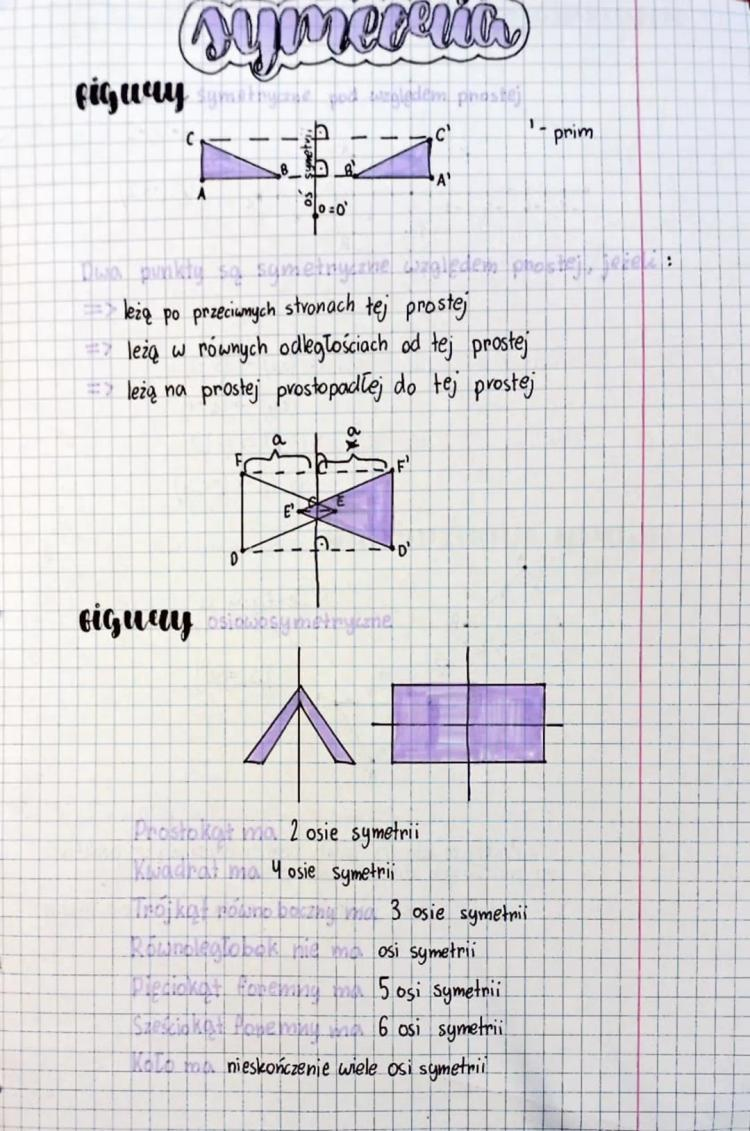 symetria
figury symetryczne pod względem prostej
C C' '- prim
oś symetrii
B B'
A A'
D=D'
Dwa punkty są symetryczne względem prostej, jeżeli:
=> leżą po przeciwnych stronach tej prostej
=> leżą w równych odległościach od tej prostej
=> leżą na prostej prostopadłej do tej prostej
a a
F F'
E' E
D D'
figury osiowosymetryczne
Prostokąt ma 2 osie symetrii
Kwadrat ma 4 osie symetrii
Trójkąt równoboczny ma 3 osie symetrii
Równoległobok nie ma osi symetrii
Pięciokąt foremny ma 5 osi symetrii
Sześciokąt foremny ma 6 osi symetrii
Koło ma nieskończenie wiele osi symetrii